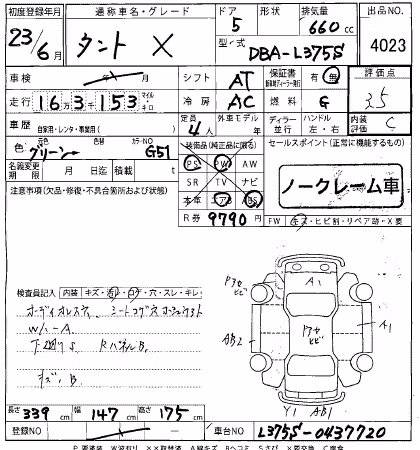 初度登録年月 通称車名・グレード ドア 形状 排気量 出品NO
23/6月 タント X 5 660cc 4023
型式 DBA-L375S
車検 年 月 シフト AT 保証書 有 無 評価点
走行 16万3千153 マイル キロ 冷房 AC 燃料 G 3.5
車歴 自家用・レンタ・事業用( ) 定員 4人 外車モデル年式 ディーラー 並行 ハンドル 左・右 内装 C
色 グリーン 色替 カラーNO G51 装備品(純正品に限る) セールスポイント(正常に機能するもの)
名義変更期限 月 日迄 積載量 t PS PW AW
注意事項(欠品・修復・不具合箇所および状態) SR TV ナビ ノークレーム車
本革 エアB ABS
R券 9790円 FW キズ・ヒビ割・リペア跡・X要
検査員記入 内装 キズ・汚レ・コゲ・穴・スレ・キレ
オーディオレス穴
W小-A
下廻りS RパネルB
キズ小B
Pアセ ヒビ A1
Pアセ ヒビ
AB2 A1
Y1 AB1
長さ 339cm 幅 147cm 高さ 175cm
登録NO 車台NO L375S-0437720